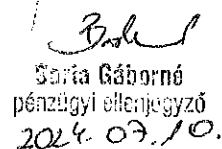 Gáborné
pénzügyi ellenjegyző
2024. 07. 10.